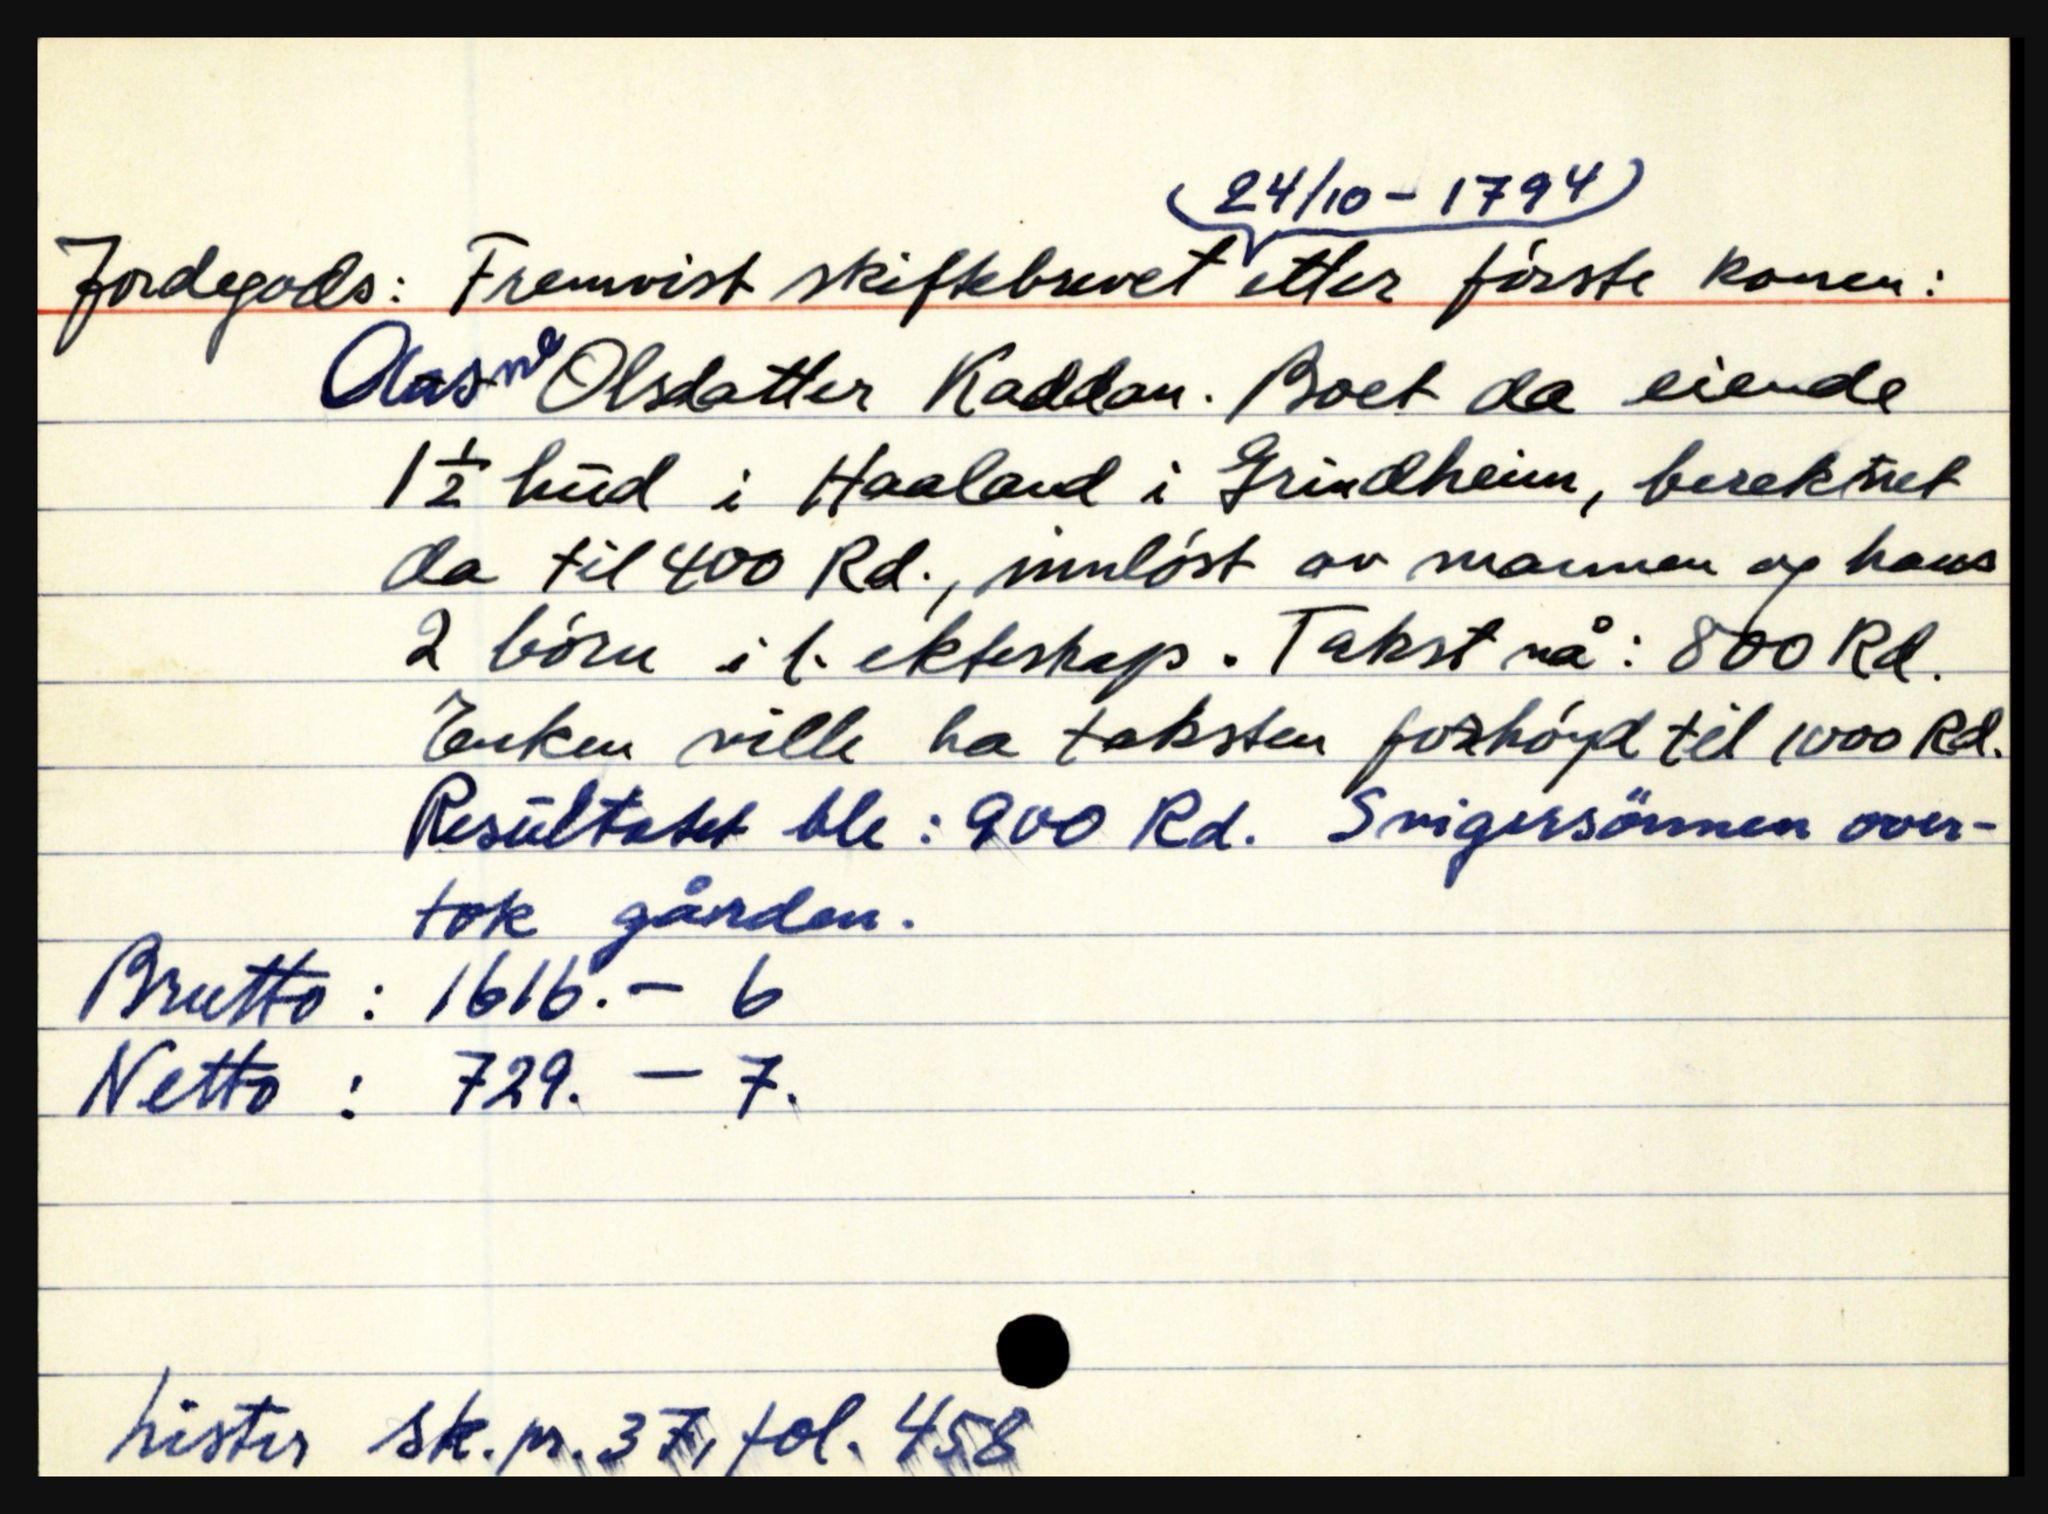 (24/10 - 1794)
Jordegods: Fremvist skiftebrevet etter förste konen:
Aasne Olsdatter Kaddan. Boet da eiende
1 1/2 hud i Haaland i Grindheim, bereknet
da til 400 Rd., innlöst av mannen og hans
2 börn i 1. ekteskap. Takst nå: 800 Rd.
Enken ville ha taksten forhöyd til 1000 Rd.
Resultatet ble: 900 Rd. Svigersönnen over-
tok gården.
Brutto: 1616. - 6
Netto: 729. - 7.
Lister sk.pr. 37, fol. 458